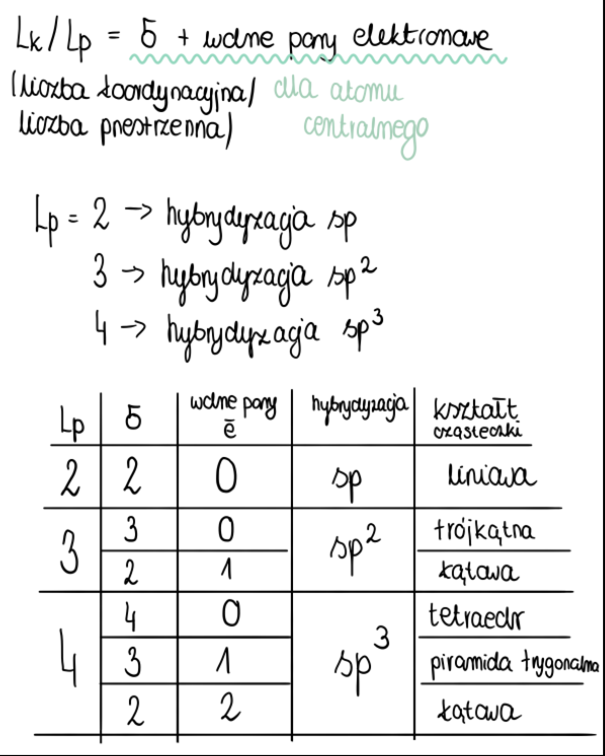 Lk/Lp = σ + wolne pary elektronowe
(liczba koordynacyjna/ dla atomu
liczba przestrzenna) centralnego
Lp = 2 -> hybrydyzacja sp
3 -> hybrydyzacja sp²
4 -> hybrydyzacja sp³
Lp σ wolne pary ē hybrydyzacja kształt cząsteczki
2 2 0 sp liniowa
3 3 0 sp² trójkątna
2 1 kątowa
4 4 0 sp³ tetraedr
3 1 piramida trygonalna
2 2 kątowa